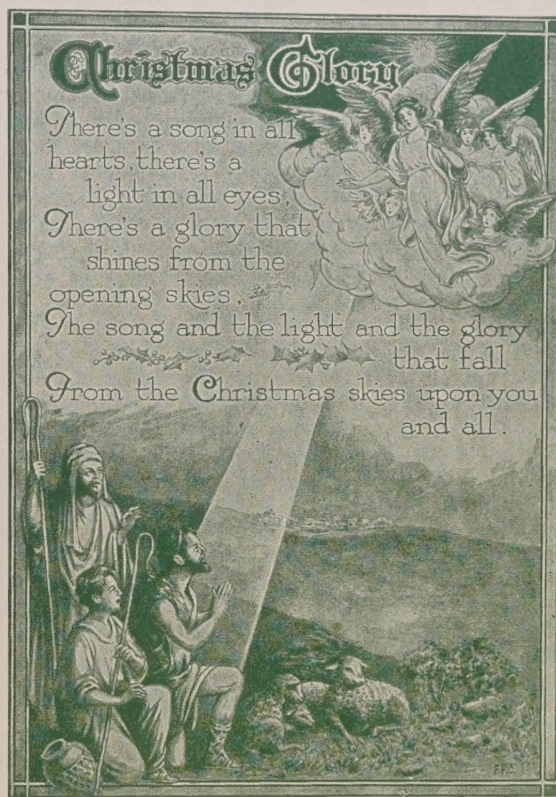 Christmas Glory
There's a song in all
hearts, there's a
light in all eyes,
There's a glory that
shines from the
opening skies,
The song and the light and the glory
that fall
From the Christmas skies upon you
and all.